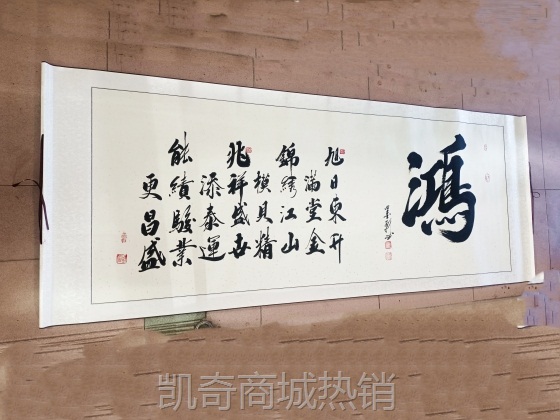 鴻
旭日東升
滿堂金
錦綉江山
模具精
兆祥盛世
添泰運
能績駿業
更昌盛
凯奇商城热销